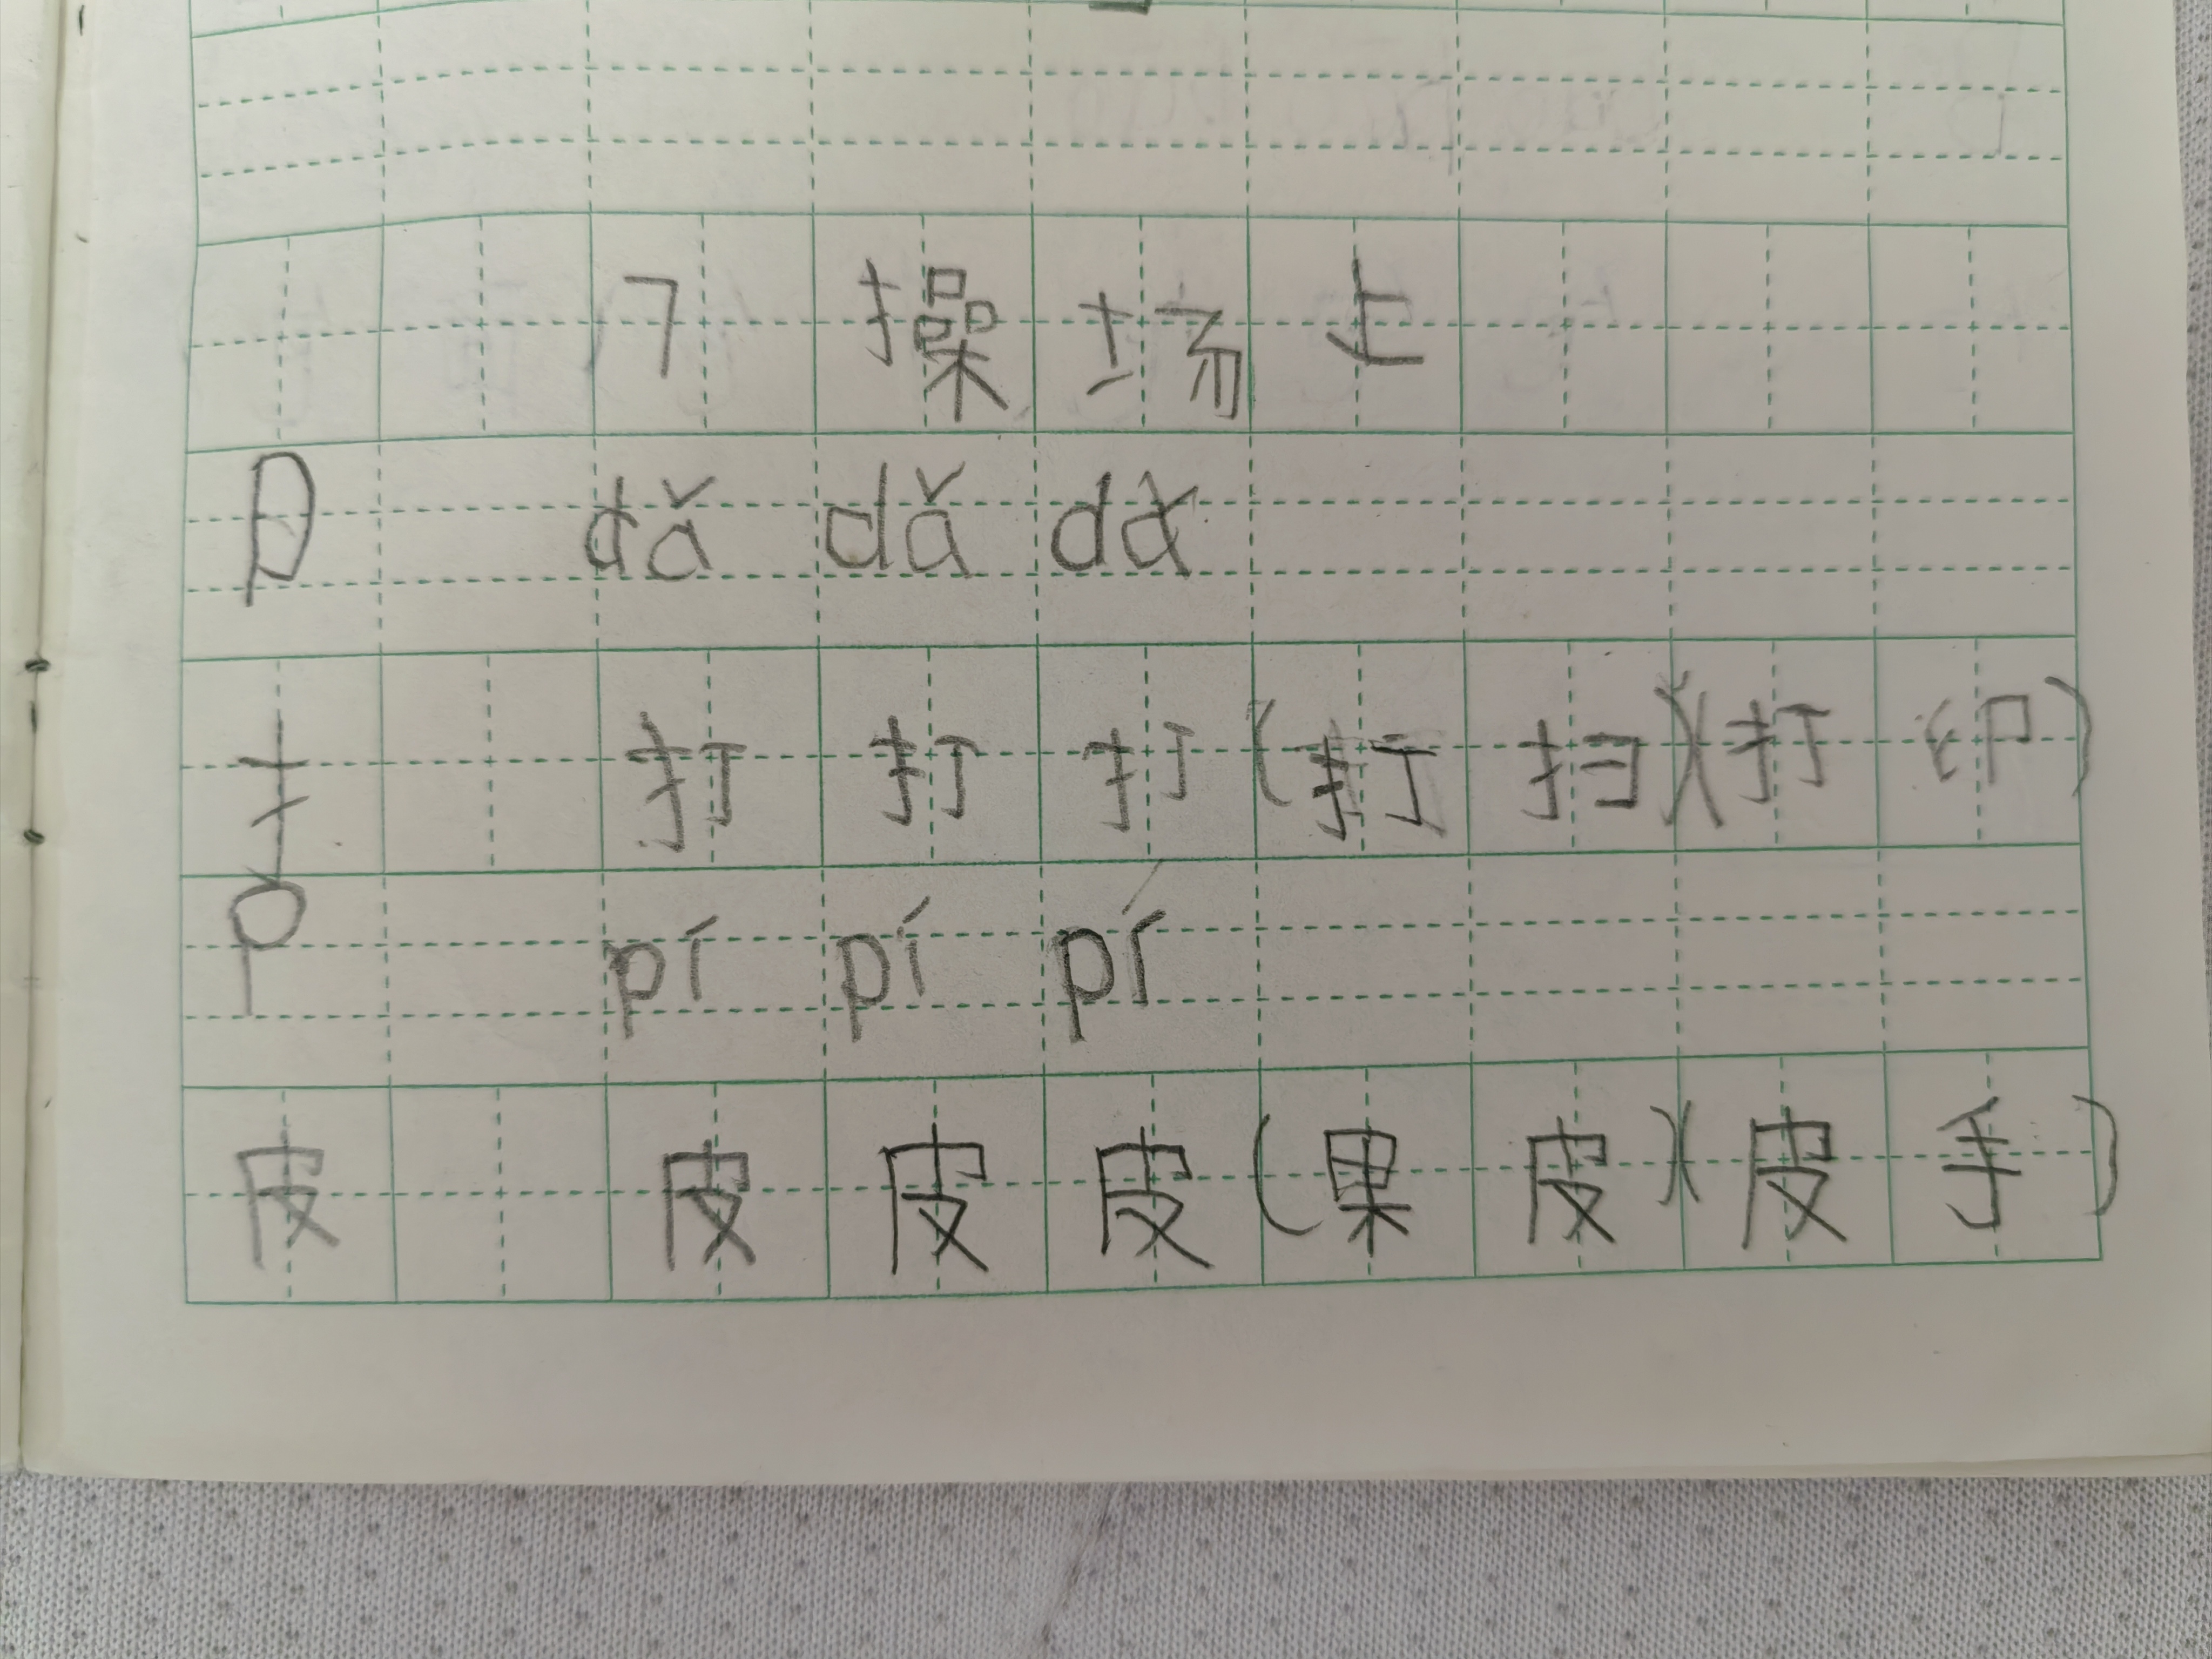 7操场上
P dǎ dǎ dǎ
扌 打 打 打 (打扫)(打印)
P pí pí pí
皮 皮 皮 皮 (果皮)(皮手)